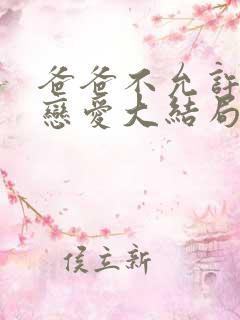 爸爸不允許
戀愛大結局
侯立新